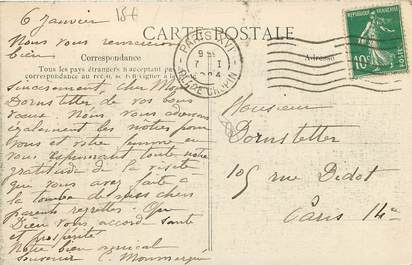 6 Janvier
184
CARTE POSTALE
Nous vous remercions
bien
Correspondance
Adresse
Tous les pays étrangers n'acceptant pas
au recto, se renseigner à la
PARIS XVI
7 1
R. DE CHOPIN
10c
POSTES
sincèrement, cher Mon
Dornstetter de vos bons
vœux. Nous vous adressons
également les nôtres pour
vous et votre femme en
vous exprimant toute notre
gratitude de la visite
que vous avez faite à
la tombe de nos chers
parents regrettés. Que
Dieu vous accord santé
et prospérité
Notre bien amical
Souvenir
Monsieur
Dornstetter
105 rue Didot
Paris 14e